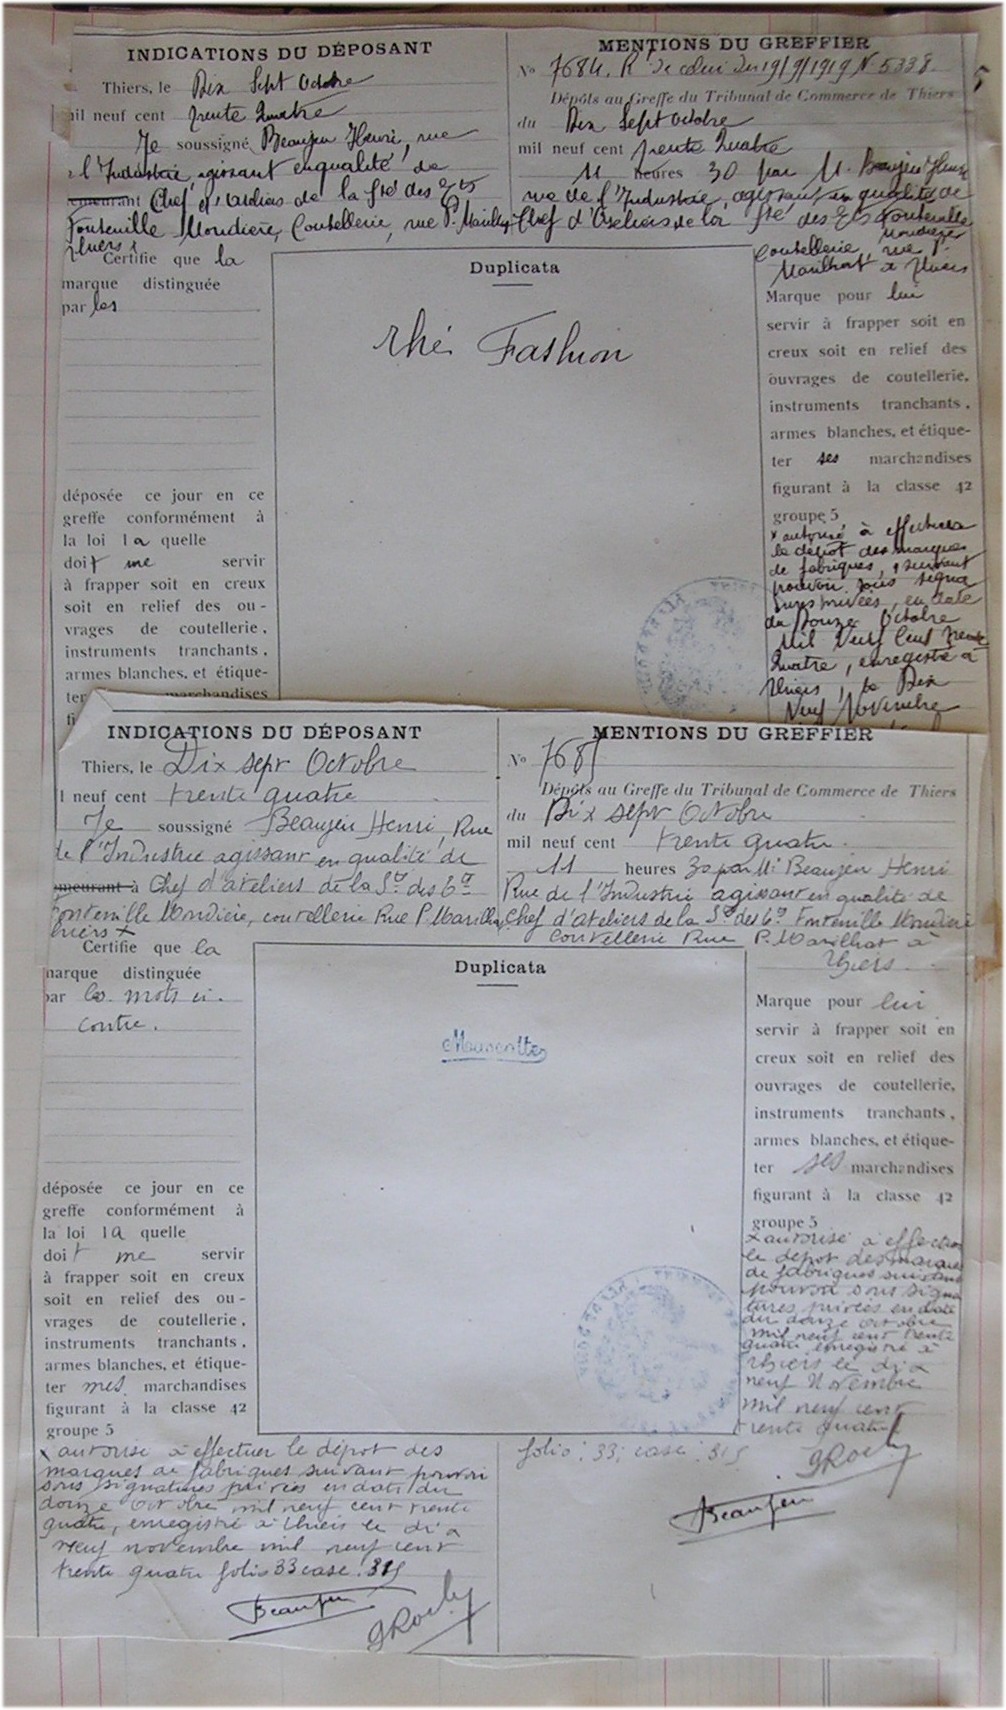 INDICATIONS DU DÉPOSANT
Thiers, le Dix Sept Octobre
mil neuf cent trente Quatre
Je soussigné Beaujeu Henri, rue
de l'Industrie, agissant en qualité de
Chef d'Ateliers de la Sté des Ets
Fontenille Mondière, Coutellerie, rue P. Marilhat
Thiers x
Certifie que la
marque distinguée
par les
déposée ce jour en ce
greffe conformément à
la loi la quelle
doit me servir
à frapper soit en creux
soit en relief des ou-
vrages de coutellerie,
instruments tranchants,
armes blanches, et étique-
ter marchandises
Duplicata
Thé Fashion
MENTIONS DU GREFFIER
No 7684. Rt de celui du 19/9/1919 N. 5338.
Dépôts au Greffe du Tribunal de Commerce de Thiers
du Dix Sept Octobre
mil neuf cent trente Quatre
11 heures 30 par M. Beaujeu Henri
rue de l'Industrie, agissant en qualité de
Chef d'Ateliers de la Sté des Ets Fontenille
Mondière
Coutellerie, rue P.
Marilhat à Thiers
Marque pour lui
servir à frapper soit en
creux soit en relief des
ouvrages de coutellerie,
instruments tranchants,
armes blanches, et étique-
ter ses marchandises
figurant à la classe 42
groupe 5
x autorisé à effectuer
le dépôt des marques
de fabriques, suivant
pouvoir sous signa
tures privées, en date
du Douze Octobre
Mil Neuf Cent trente
Quatre, enregistré à
Thiers, le Dix
Neuf Novembre
INDICATIONS DU DÉPOSANT
Thiers, le Dix sept Octobre
l neuf cent trente quatre
Je soussigné Beaujeu Henri, Rue
de l'Industrie agissant en qualité de
demeurant à Chef d'ateliers de la Sté des Ets
Fontenille Mondière, coutellerie Rue P. Marilhat
Thiers x
Certifie que la
marque distinguée
par les mots ci-
contre.
déposée ce jour en ce
greffe conformément à
la loi la quelle
doit me servir
à frapper soit en creux
soit en relief des ou-
vrages de coutellerie,
instruments tranchants,
armes blanches, et étique-
ter mes marchandises
figurant à la classe 42
groupe 5
x autorisé à effectuer le dépôt des
marques de fabriques suivant pouvoir
sous signatures privées en date du
douze octobre mil neuf cent trente
quatre, enregistré à Thiers le dix
neuf novembre mil neuf cent
trente quatre folio 33 case. 315
Beaujeu
Duplicata
MENTIONS DU GREFFIER
No 7685
Dépôts au Greffe du Tribunal de Commerce de Thiers
du Dix sept Octobre
mil neuf cent trente quatre.
11 heures 30 par Mr Beaujeu Henri
Rue de l'Industrie agissant en qualité de
Chef d'ateliers de la Sté des Ets Fontenille Mondière
Coutellerie Rue P. Marilhat à
Thiers
Marque pour lui
servir à frapper soit en
creux soit en relief des
ouvrages de coutellerie,
instruments tranchants,
armes blanches, et étique-
ter ses marchandises
figurant à la classe 42
groupe 5
x autorisé à effectuer
le dépôt des marques
de fabriques suivant
pouvoir sous signa
tures privées en date
du douze octobre
mil neuf cent trente
quatre enregistré à
Thiers le dix
neuf Novembre
mil neuf cent
trente quatre
folio : 33 : case : 315
Beaujeu